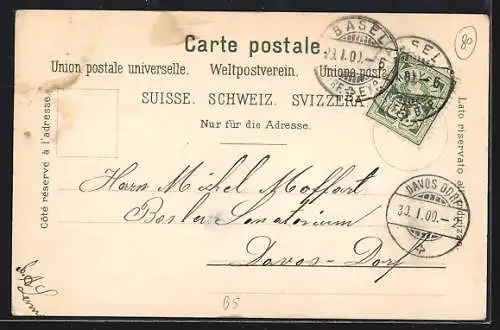 80
Carte postale
Union postale universelle. Weltpostverein. Unione posta
SUISSE. SCHWEIZ. SVIZZERA
Nur für die Adresse.
Côté réservé à l'adresse.
Lato riservato
BASEL
DAVOS DORF
Herrn Michel Moffart
Basler Sanatorium
Davos-Dorf
BS